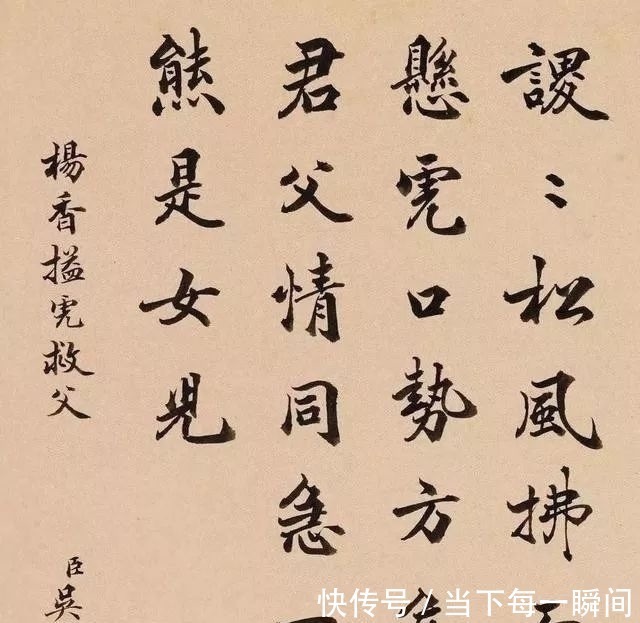 謖〻松風拂
懸虎口勢方
君父情同急
熊是女兒
楊香搤虎救父
臣吳
快传号/当下每一瞬间